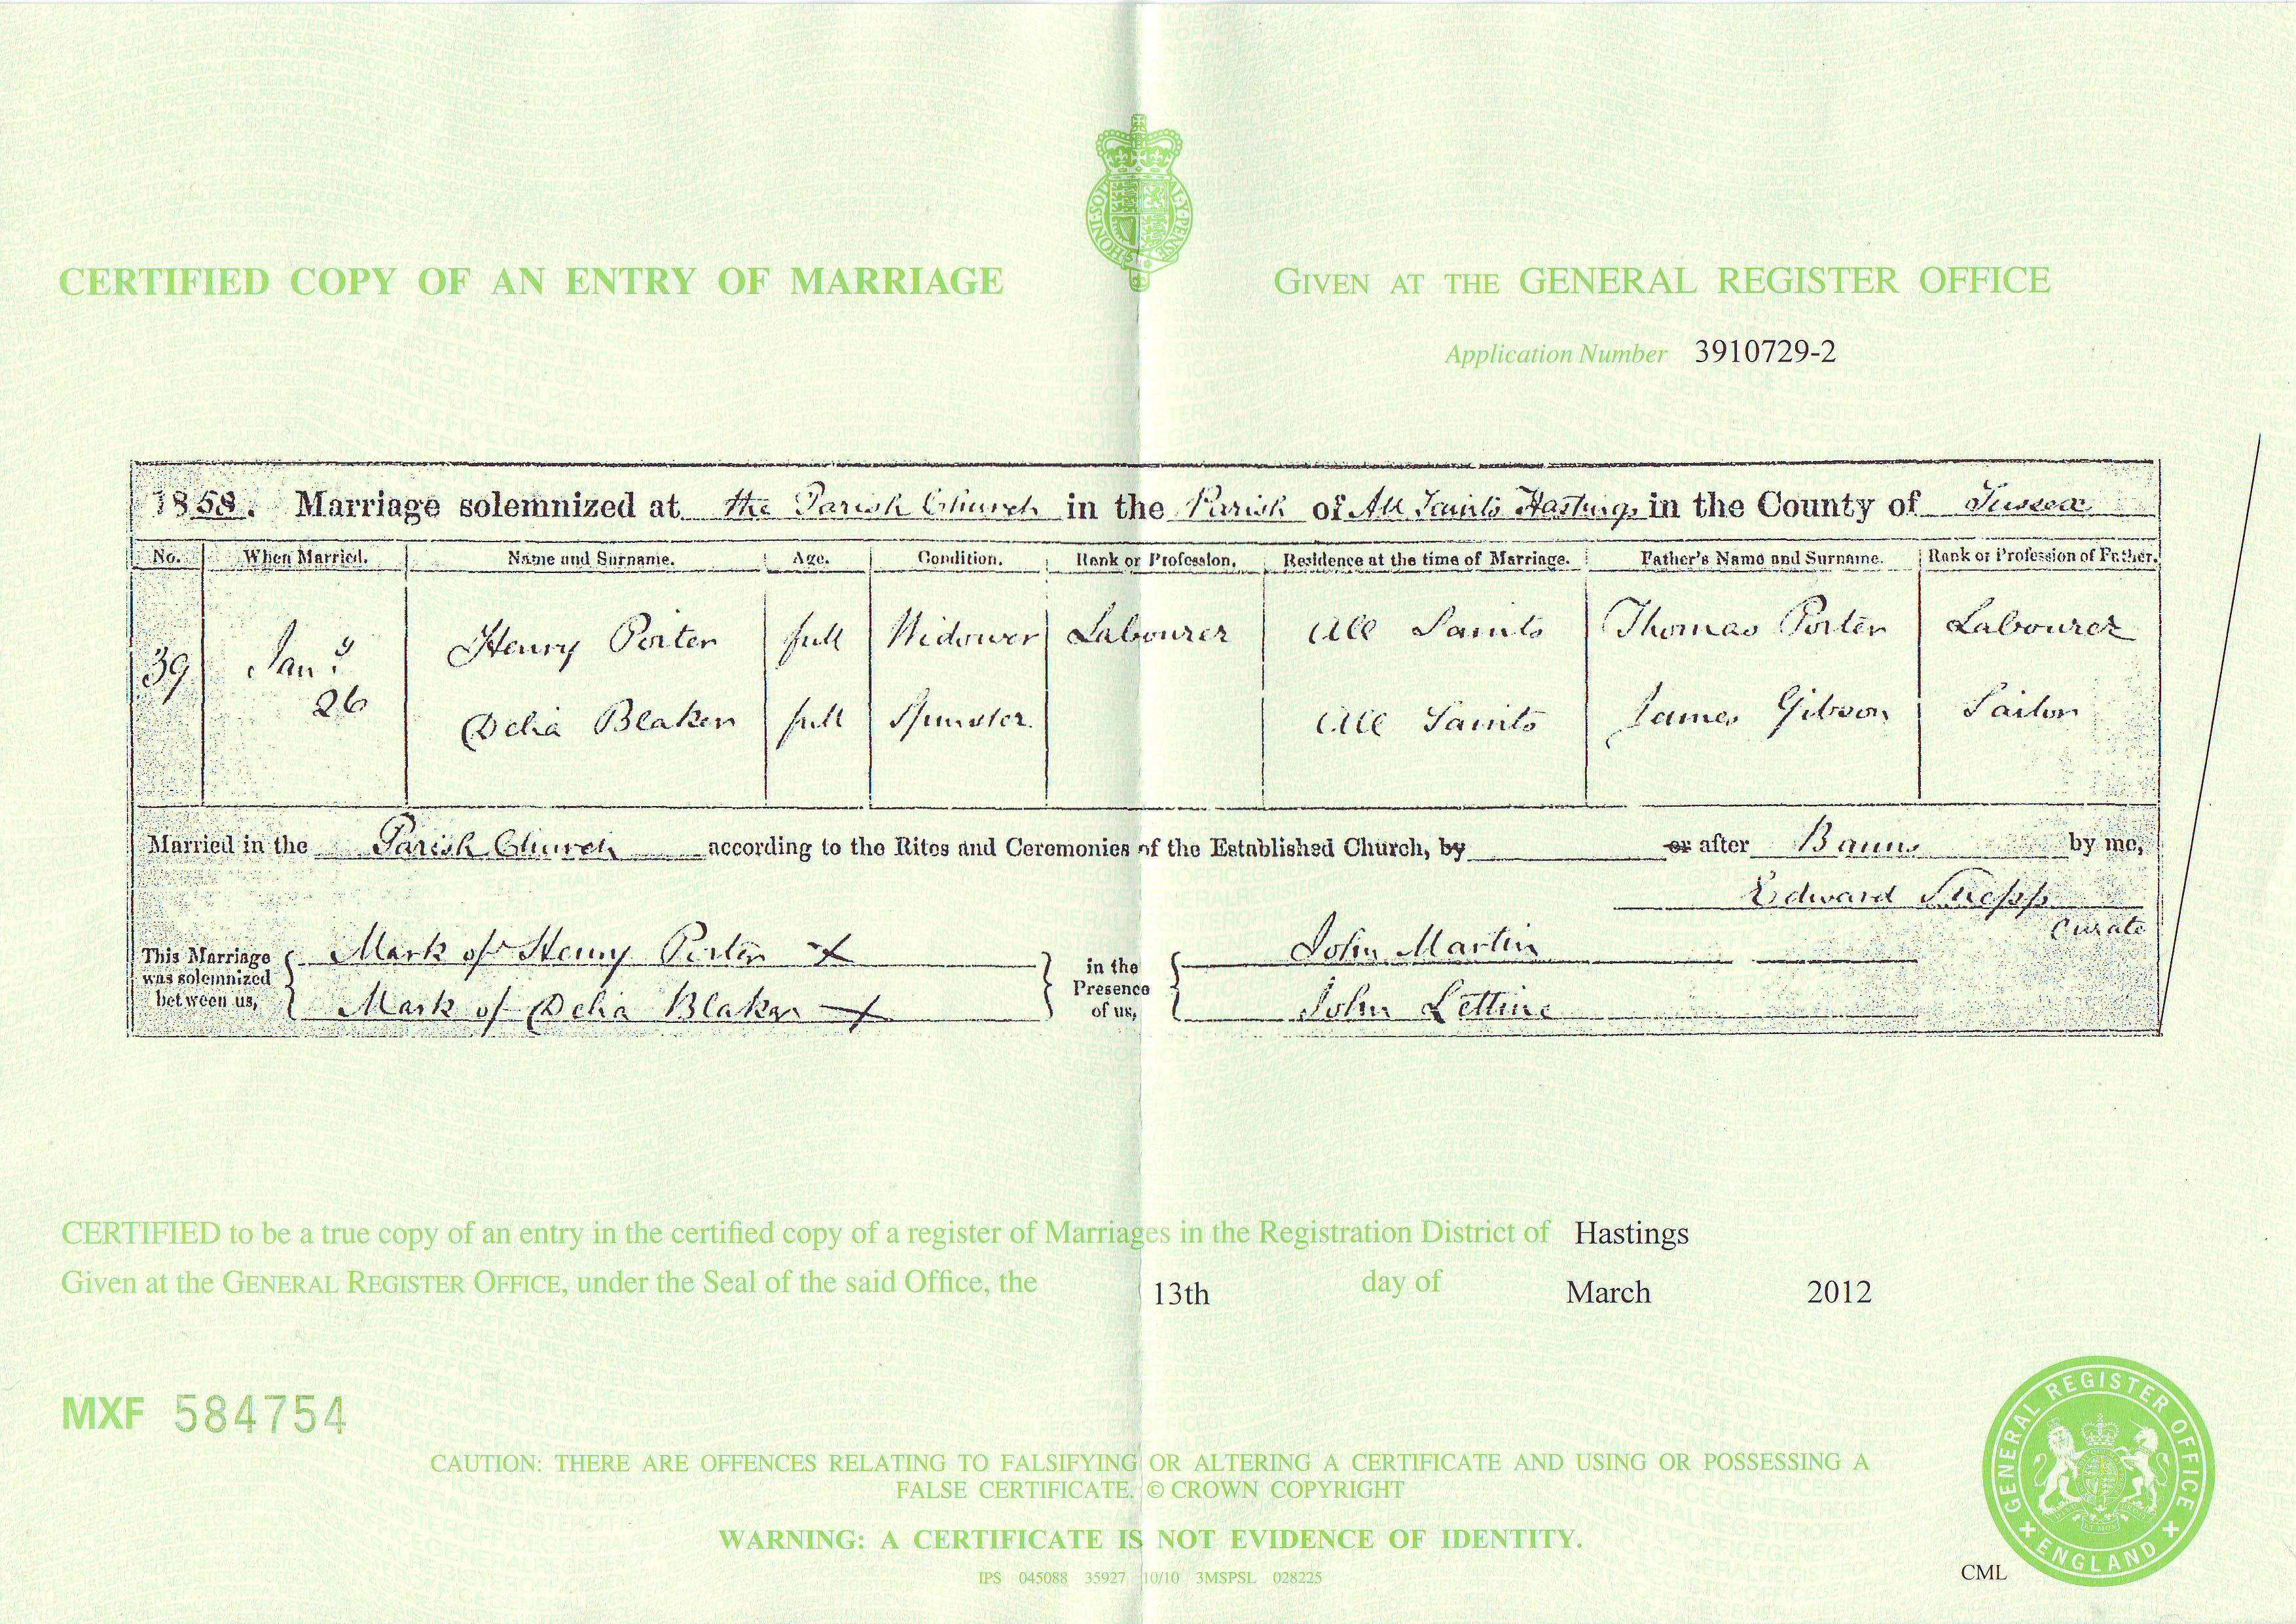 HONI·SOIT·QUI·MAL·Y·PENSE
CERTIFIED COPY OF AN ENTRY OF MARRIAGE
GIVEN AT THE GENERAL REGISTER OFFICE
Application Number 3910729-2
1858. Marriage solemnized at the Parish Church in the Parish of All Saints Hastings in the County of Sussex
No. When Married. Name and Surname. Age. Condition. Rank or Profession. Residence at the time of Marriage. Father's Name and Surname. Rank or Profession of Father.
39 Jany 26 Henry Porter full Widower Labourer All Saints Thomas Porter Labourer
Delia Blaker full Spinster All Saints James Gibson Sailor
Married in the Parish Church according to the Rites and Ceremonies of the Established Church, by or after Banns by me,
Edward
Curate
This Marriage was solemnized between us,
Mark of Henry Porter X
Mark of Delia Blaker X
in the Presence of us,
John Martin
John
CERTIFIED to be a true copy of an entry in the certified copy of a register of Marriages in the Registration District of Hastings
Given at the GENERAL REGISTER OFFICE, under the Seal of the said Office, the 13th day of March 2012
MXF 584754
CAUTION: THERE ARE OFFENCES RELATING TO FALSIFYING OR ALTERING A CERTIFICATE AND USING OR POSSESSING A
FALSE CERTIFICATE. © CROWN COPYRIGHT
WARNING: A CERTIFICATE IS NOT EVIDENCE OF IDENTITY.
IPS 045088 35927 10/10 3MSPSL 028225
CML
GENERAL REGISTER OFFICE
ENGLAND